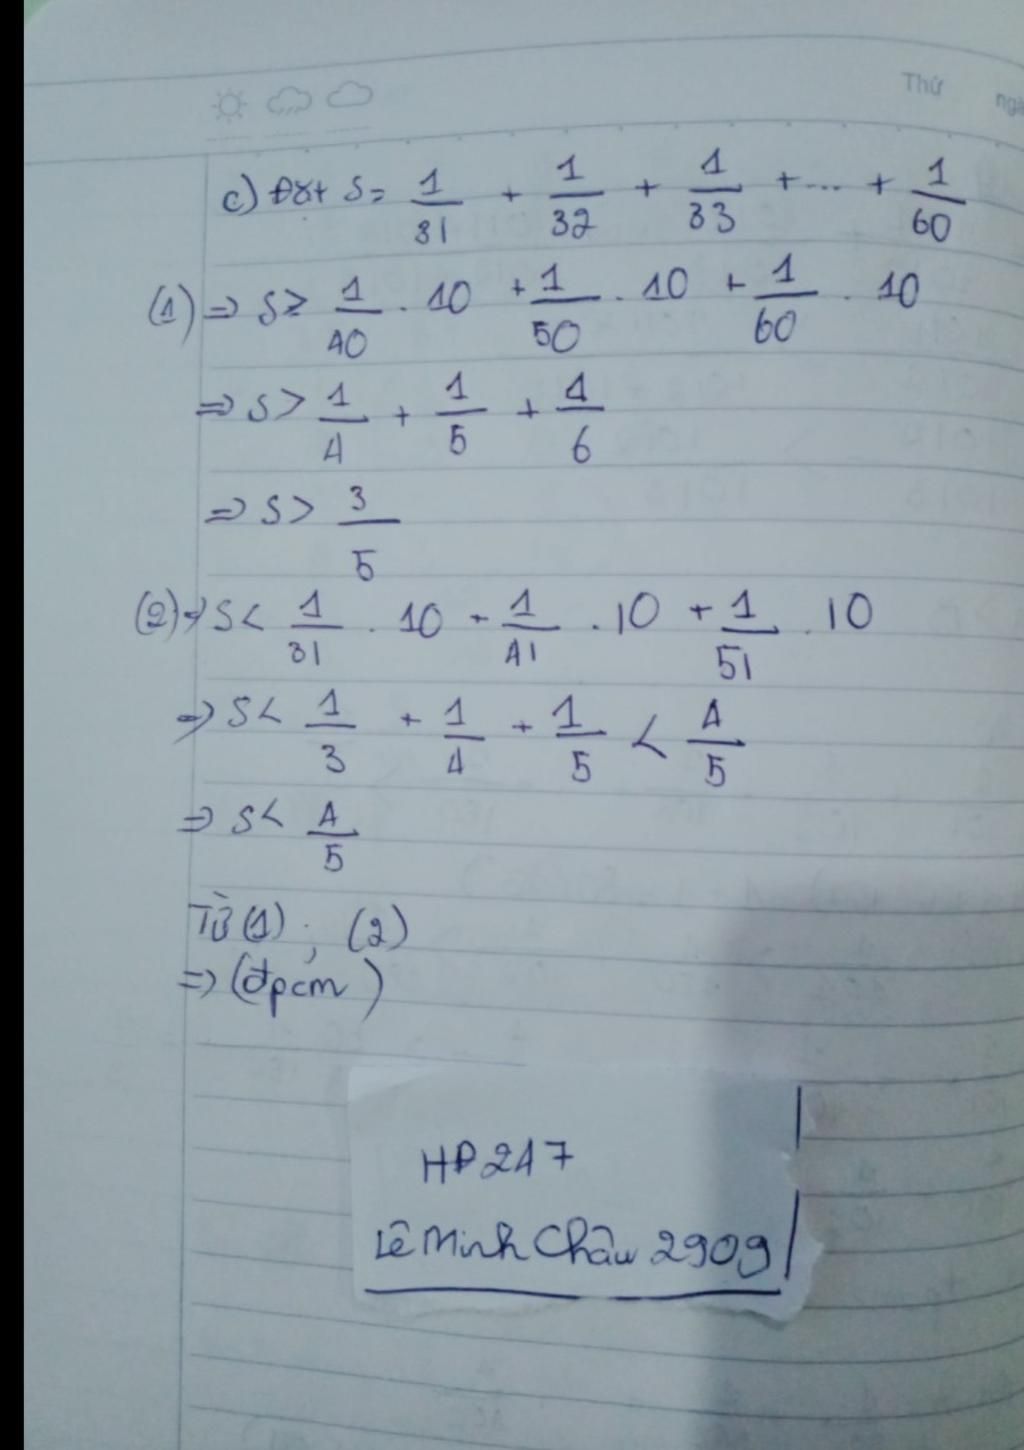 Thứ ngà
c) Đặt S = 1/31 + 1/32 + 1/33 + ... + 1/60
(1) => S ≥ 1/40 . 10 + 1/50 . 10 + 1/60 . 10
=> S > 1/4 + 1/5 + 1/6
=> S > 3/5
(2) => S < 1/31 . 10 + 1/41 . 10 + 1/51 . 10
=> S < 1/3 + 1/4 + 1/5 < 4/5
=> S < 4/5
Từ (1) ; (2)
=> (đpcm)
HĐ247
Lê Minh Châu 2909